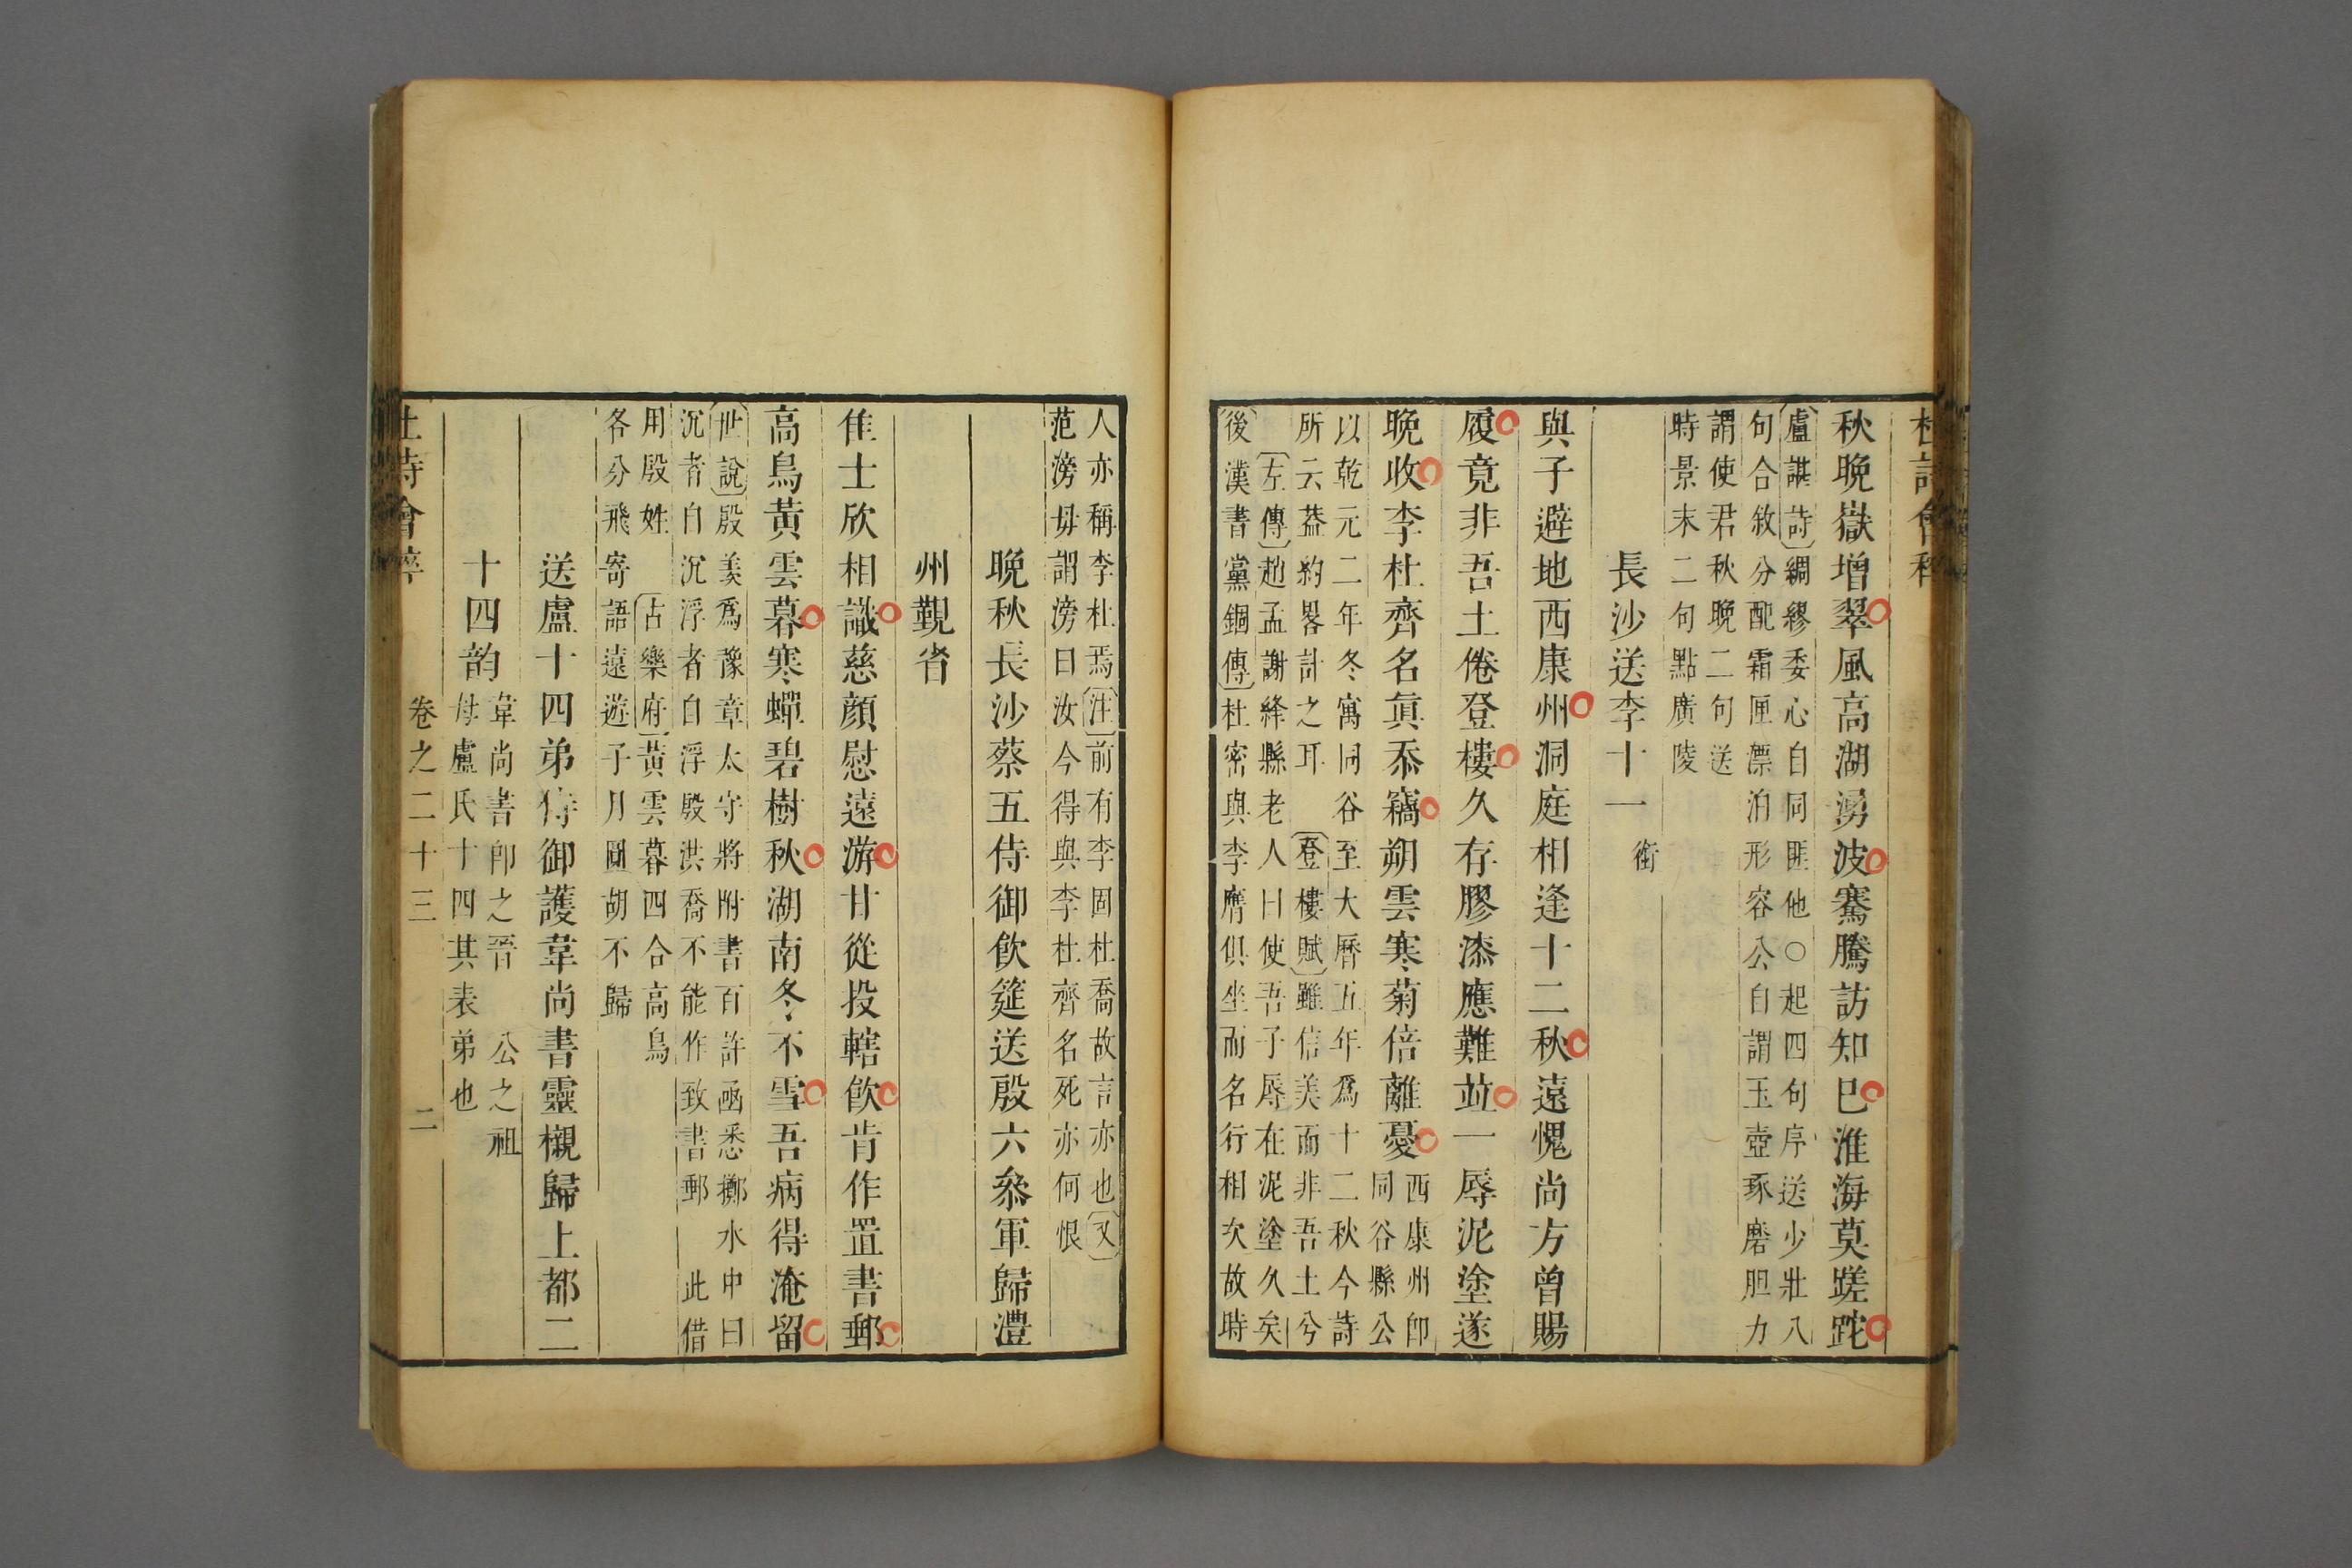 杜詩會稡
秋晚嶽增翠風高湖湧波騫騰訪知巳淮海莫蹉跎
盧諶詩綢繆委心自同匪他○起四句序送少壯八
句合敘分配霜匣漂泊形容公自謂玉壺琢磨胆力
謂使君秋晚二句送
時景末二句點廣陵
長沙送李十一銜
與子避地西康州洞庭相逢十二秋遠愧尚方曾賜
履竟非吾土倦登樓久存膠漆應難並一辱泥塗遂
晚收李杜齊名眞忝竊朔雲寒菊倍離憂
西康州卽
同谷縣公
以乾元二年冬寓同谷至大曆五年爲十二秋今詩
所云葢約畧計之耳登樓賦雖信美而非吾土兮
左傳趙孟謝絳縣老人曰使吾子辱在泥塗久矣
後漢書黨錮傳杜密與李膺俱坐而名行相次故時
人亦稱李杜焉注前有李固杜喬故言亦也又
范滂毋謂滂曰汝今得與李杜齊名死亦何恨
晚秋長沙蔡五侍御飮筵送殷六叅軍歸澧
州覲省
佳士欣相識慈顏慰遠游甘從投轄飮肯作置書郵
高鳥黃雲暮寒蟬碧樹秋湖南冬不雪吾病得淹留
世說殷羡爲豫章太守將附書百許函悉擲水中曰
沉者自沉浮者自浮殷洪喬不能作致書郵 此借
用殷姓 古樂府黃雲暮四合高鳥
各分飛寄語遠遊子月圓胡不歸
送盧十四弟侍御護韋尚書靈櫬歸上都二
十四韵
韋尚書卽之晉 公之祖
母盧氏十四其表弟也
杜詩會稡 卷之二十三 二